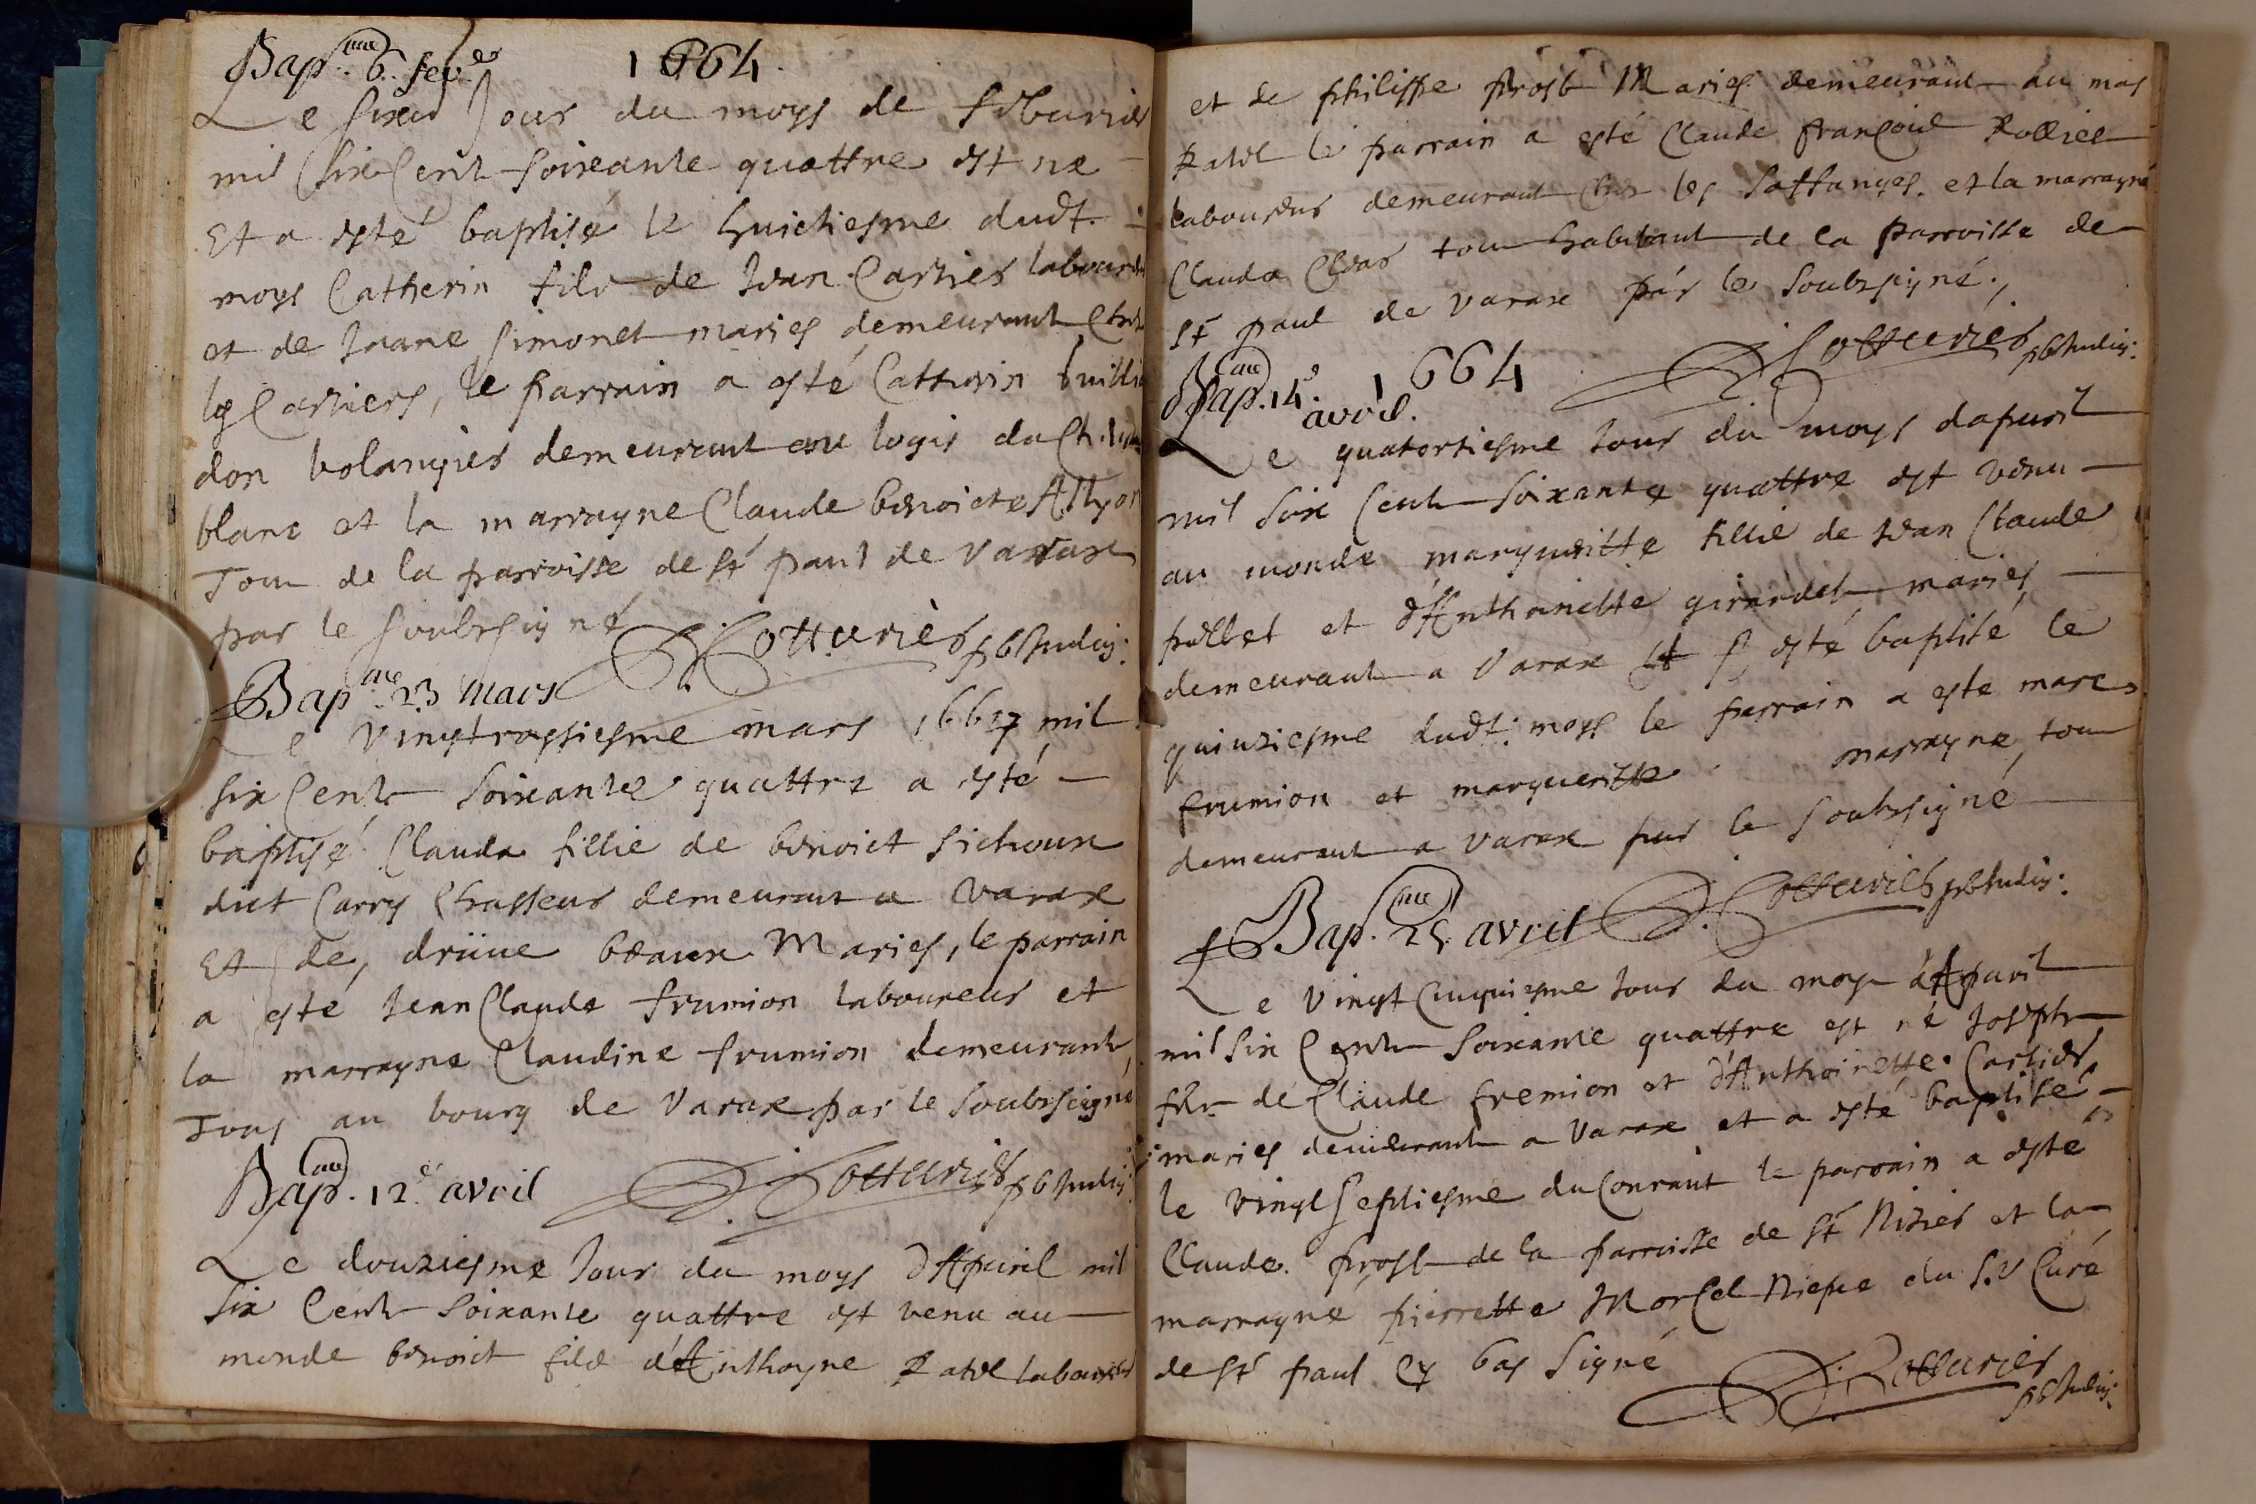 Bap.me 6. fev.er 1664.
Le sixie Jour du moys de febvrier
mil six Cent soixante quattre est ne
Et a esté baptisé le huictiesme dudt.
moys Catherin fils de Jean Carrier labour
et de Jeane Simonet maries demeurant Ches
les Carriers, le parrain a esté Catherin
don bolangier demeurant au logis du Cheval
blanc et la marrayne Claude benoiete
Tous de la parroisse de st paul de Varax
par le soubsigné Cotturier pbr Indig:
Bap.me 23 mars
Le vingtroysiesme mars 1667 mil
six Cent soixante quattre a esté
baptisé Clauda fillie de benoict sichoux
dict Carry Chasseur demeurant a Varax
Et de, beaux Maries, le parrain
a esté Jean Claude frumion laboureur et
la marrayne Claudine frumion demeurant
Tous au bourg de Varax par le soubsigné
Bap.me 12.e avril Cotturier pbr Indig:
Le douziesme Jour du moys d'Apvril mil
six Cent soixante quattre est venu au
monde benoict fils d'Anthoyne Ratel laboureur
et de philippe prost Maries demeurant au mas
Ratel le parrain a esté Claude françois Rollier
laboureur demeurant Ches les et la marrayne
Clauda Cler tous habitant de la parroisse de
st paul de varax par le soubsigné.
Cotturier pbr Indig:
Bap.me 14.e avril. 1664
Le quatorsiesme Jour du moys dapvril
mil six Cent soixante quattre est venu
au monde margueritte fillie de Jean Claude
pillet et d'Anthoinette girardet maries
demeurant a Varax Et a esté baptisé le
quinziesme dudt: moys le parrain a este marc
frumion et marguerite marrayne tous
demeurant a varax par le soubsigné
Cotturier pbr Indig:
Bap.me 25. avril
Le vingt Cinquiesme Jour du moys d'Apvril
mil six Cent soixante quattre est né Joseph
fils de Claude fremion et d'Anthoinette Carrier
maries demeurant a Varax et a esté baptisé
le vingt septiesme du Courant le parrain a esté
Claude prost de la parroisse de st Nizier et la
marrayne pierrette Morcel Niepce du S.r Curé
de st paul Cy bas signé
Cotturier pbr Indig: